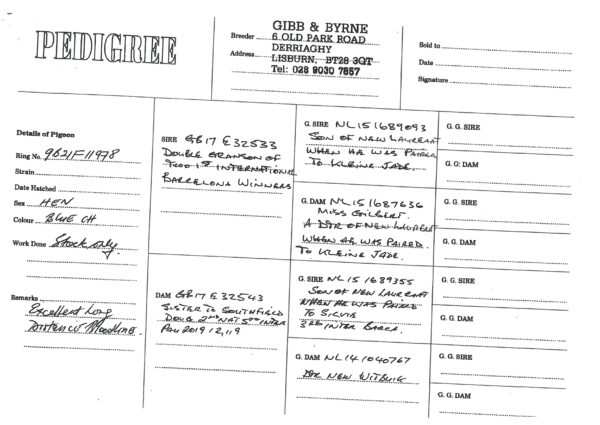 PEDIGREE
GIBB & BYRNE
Breeder 6 OLD PARK ROAD
DERRIAGHY
Address LISBURN, BT28 3QT
Tel: 028 9030 7857
Sold to
Date
Signature
Details of Pigeon
Ring No. GB21F11978
Strain
Date Hatched
Sex HEN
Colour BLUE CH
Work Done Stock only
Remarks
Excellent Long
Distance Bloodlines.
SIRE GB17 E32533
DOUBLE GRANSON OF
TWO 1ST INTERNATIONAL
BARCELONA WINNERS
DAM GB17 E32543
SISTER TO SOUTHFIELD
DOUG 2ND NAT 5TH INTER
PAU 2019
G. SIRE NL15 1689093
SON OF NEW LAUREAAT
WHEN HE WAS PAIRED
TO KLEINE JADE.
G. DAM NL15 1687636
MISS GILBERT.
A DTR OF NEW LAUREAAT
WHEN HE WAS PAIRED.
TO KLEINE JADE.
G. SIRE NL15 1689355
SON OF NEW LAUREAAT
WHEN HE WAS PAIRED
TO SILVIE
3RD INTER BARCA.
G. DAM NL14 1040767
DTR NEW WITBUIK
G. G. SIRE
G. G. DAM
G. G. SIRE
G. G. DAM
G. G. SIRE
G. G. DAM
G. G. SIRE
G. G. DAM